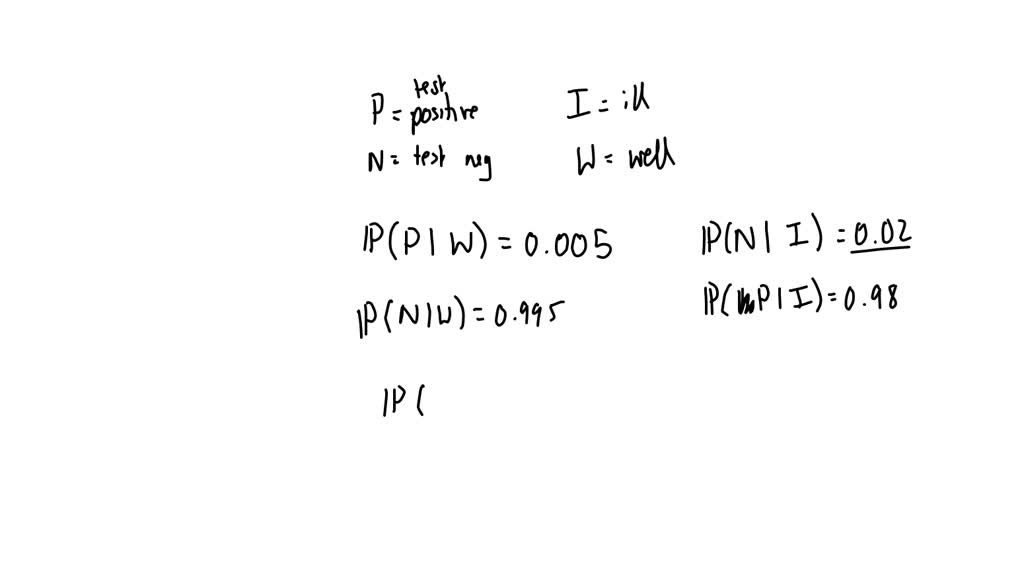 P = test positive I = ill
N = test neg W = well
ℙ(P | W) = 0.005 ℙ(N | I) = 0.02
ℙ(N | W) = 0.995 ℙ(P | I) = 0.98
ℙ(